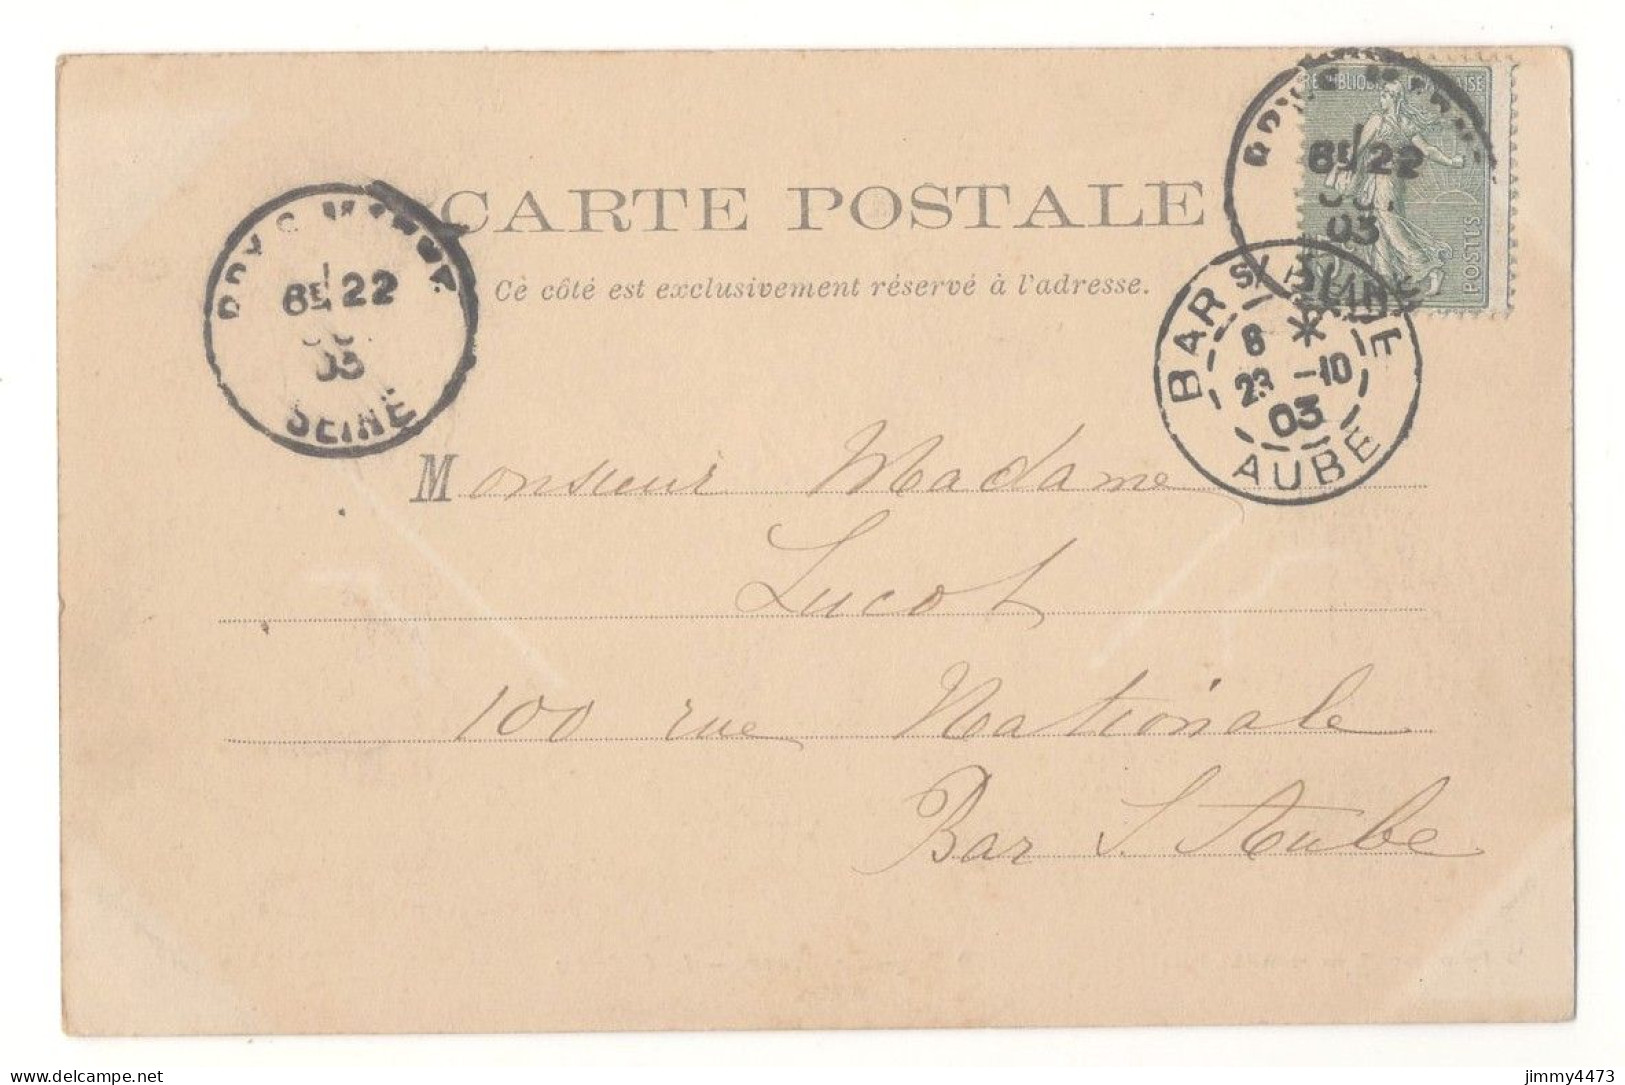 RÉPUBLIQUE FRANÇAISE
POSTES
BRY-S-MARNE
6E 22
03
BRY-S-MARNE
6E 22
03
SEINE
CARTE POSTALE
Cè côté est exclusivement réservé à l'adresse.
BAR S/ AUBE
8 *
23 -10
03
AUBE
Monsieur Madame
Lucot
100 rue Nationale
Bar S. Aube
www.delcampe.net
jimmy4473